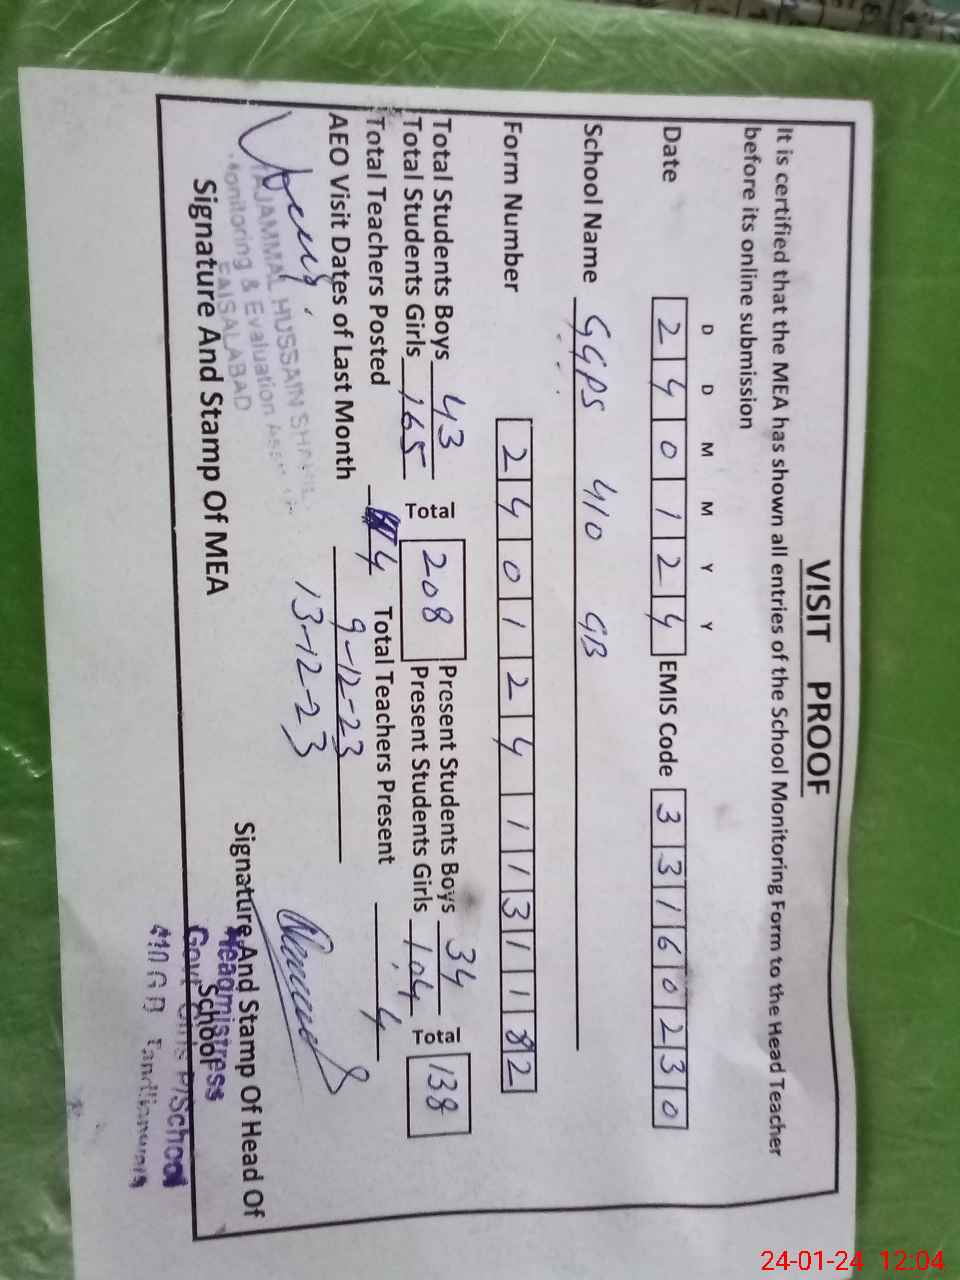 VISIT PROOF
It is certified that the MEA has shown all entries of the School Monitoring Form to the Head Teacher
before its online submission
D D M M Y Y
Date 2 4 0 1 2 4 EMIS Code 3 3 1 6 0 2 3 0
School Name GGPS 410 GB
Form Number 2 4 0 1 2 4 1 1 3 1 1 8 2
Total Students Boys 43 Total 208 Present Students Boys 34 Total 138
Total Students Girls 165 Present Students Girls 104
Total Teachers Posted 4 Total Teachers Present 4
AEO Visit Dates of Last Month 9-12-23
13-12-23
TAJAMMAL HUSSAIN
Monitoring & Evaluation
FAISALABAD
Signature And Stamp Of MEA
Signature And Stamp Of Head Of
School
Headmistress
Govt Girls P/School
410 GB Tandlianwala
24-01-24 12:04